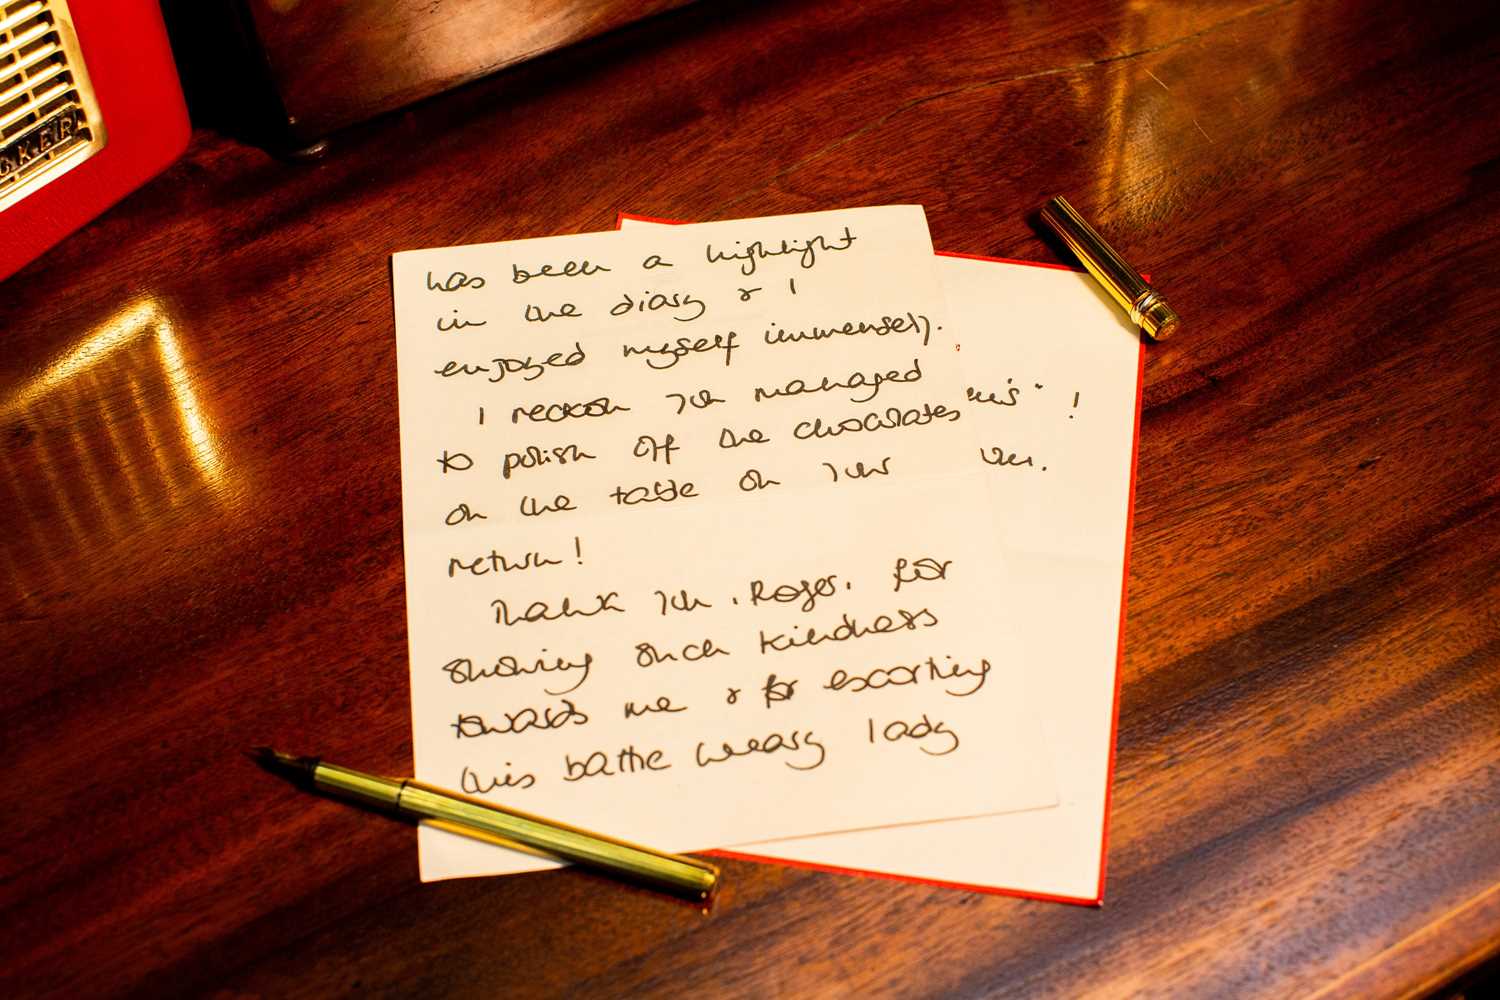 has been a highlight
in the diary & I
enjoyed myself immensely.
I reckon you managed
to polish off the chocolates
on the table on your
return!
Thank you, Roger, for
showing such kindness
towards me & for escorting
this battle weary lady